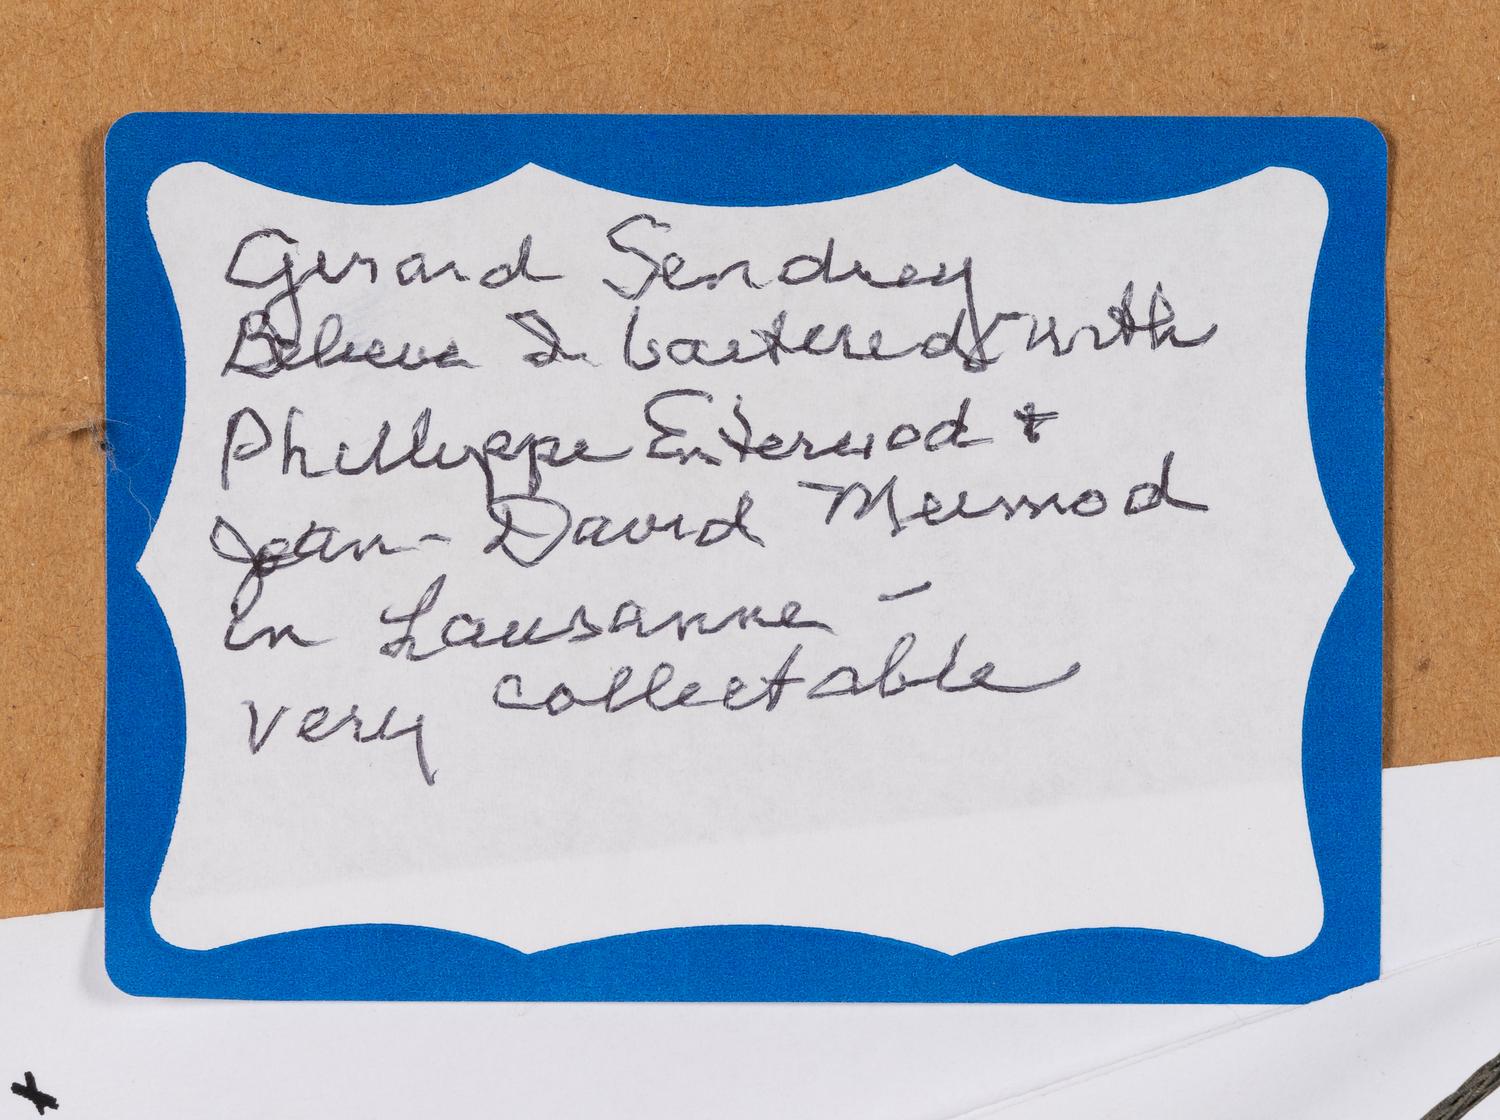 Gerard Sendrey
Believe I bartered with
Phillyppe Eternod +
Jean-David Mermod
in Lausanne -
very collectable
x